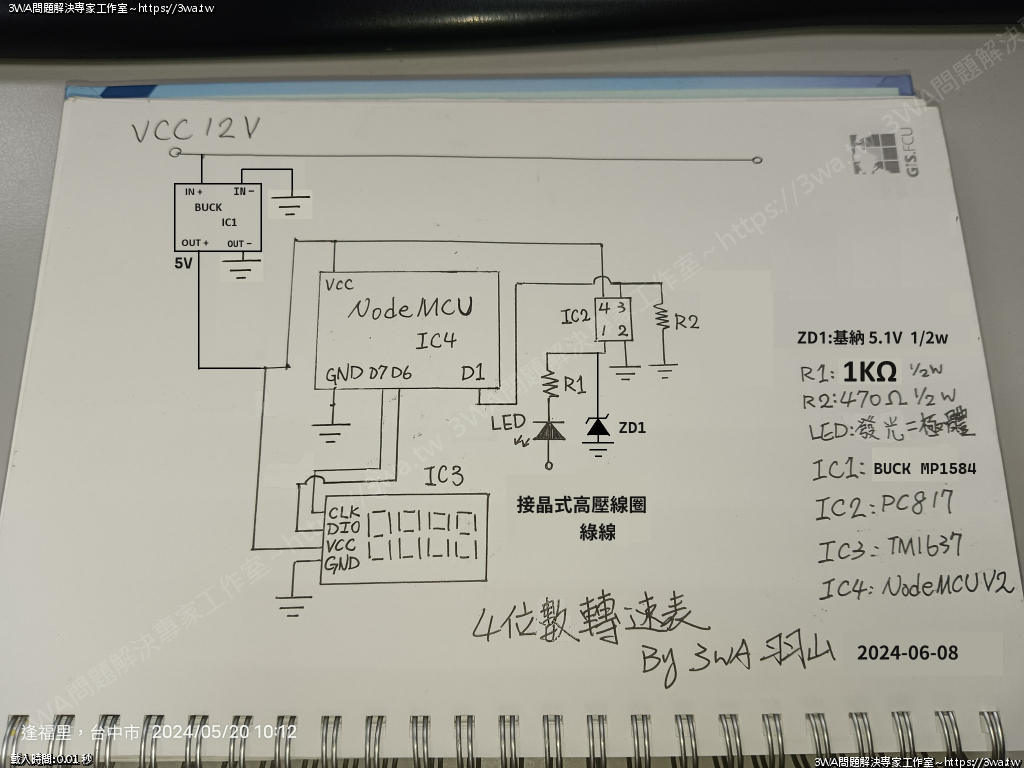 3WA問題解決專家工作室~https://3wa.tw
VCC 12V
GIS.FCU
IN +
IN −
BUCK
IC1
OUT +
OUT −
5V
VCC
NodeMCU
IC4
GND D7 D6
D1
IC2
4 3
1 2
R2
R1
LED
ZD1
IC3
CLK
DIO
VCC
GND
接晶式高壓線圈
綠線
ZD1:基納 5.1V 1/2w
R1: 1KΩ 1/2W
R2:470Ω 1/2W
LED:發光二極體
IC1: BUCK MP1584
IC2: PC817
IC3: TM1637
IC4: NodeMCU V2
4位數轉速表
By 3WA 羽山
2024-06-08
逢福里,台中市 2024/05/20 10:12
載入時間:0.01 秒
3WA問題解決專家工作室~https://3wa.tw
3WA問題解決專家工作室~https://3wa.tw